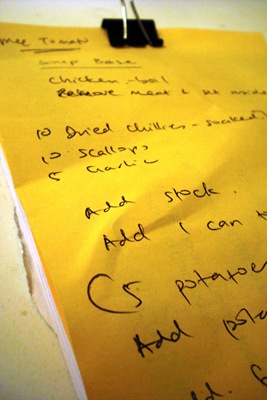 Mee Tomato
Soup Base
Chicken - boil
Remove meat & set aside
10 Dried Chillies - soaked
10 Scallops
5 Garlic
Add stock.
Add 1 can
5 potatoe
Add pota
Add.